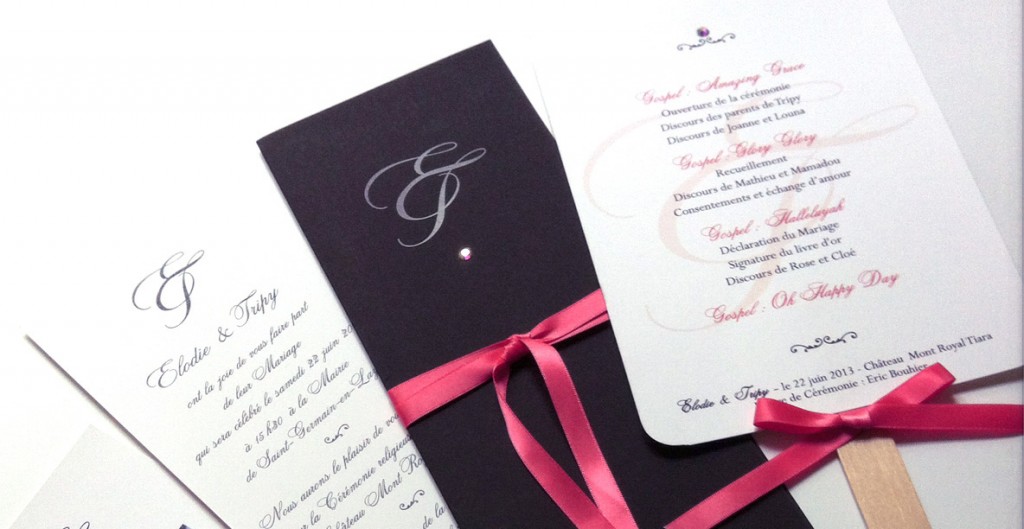 &
Elodie & Tripy
ont la joie de vous faire part
de leur Mariage
qui sera célébré le samedi 22 juin 20
à 15h30 à la Mairie
de Saint-Germain-en-La
Nous aurons le plaisir de vou
la Cérémonie religieus
âteau Mont Ro
&
Gospel : Amazing Grace
Ouverture de la cérémonie
Discours des parents de Tripy
Discours de Joanne et Louna
Gospel : Glory Glory
Recueillement
Discours de Mathieu et Mamadou
Consentements et échange d'amour
Gospel : Halleluyah
Déclaration du Mariage
Signature du livre d'or
Discours de Rose et Cloé
Gospel : Oh Happy Day
Elodie & Tripy - le 22 juin 2013 - Château Mont Royal Tiara
de Cérémonie : Eric Bouhier